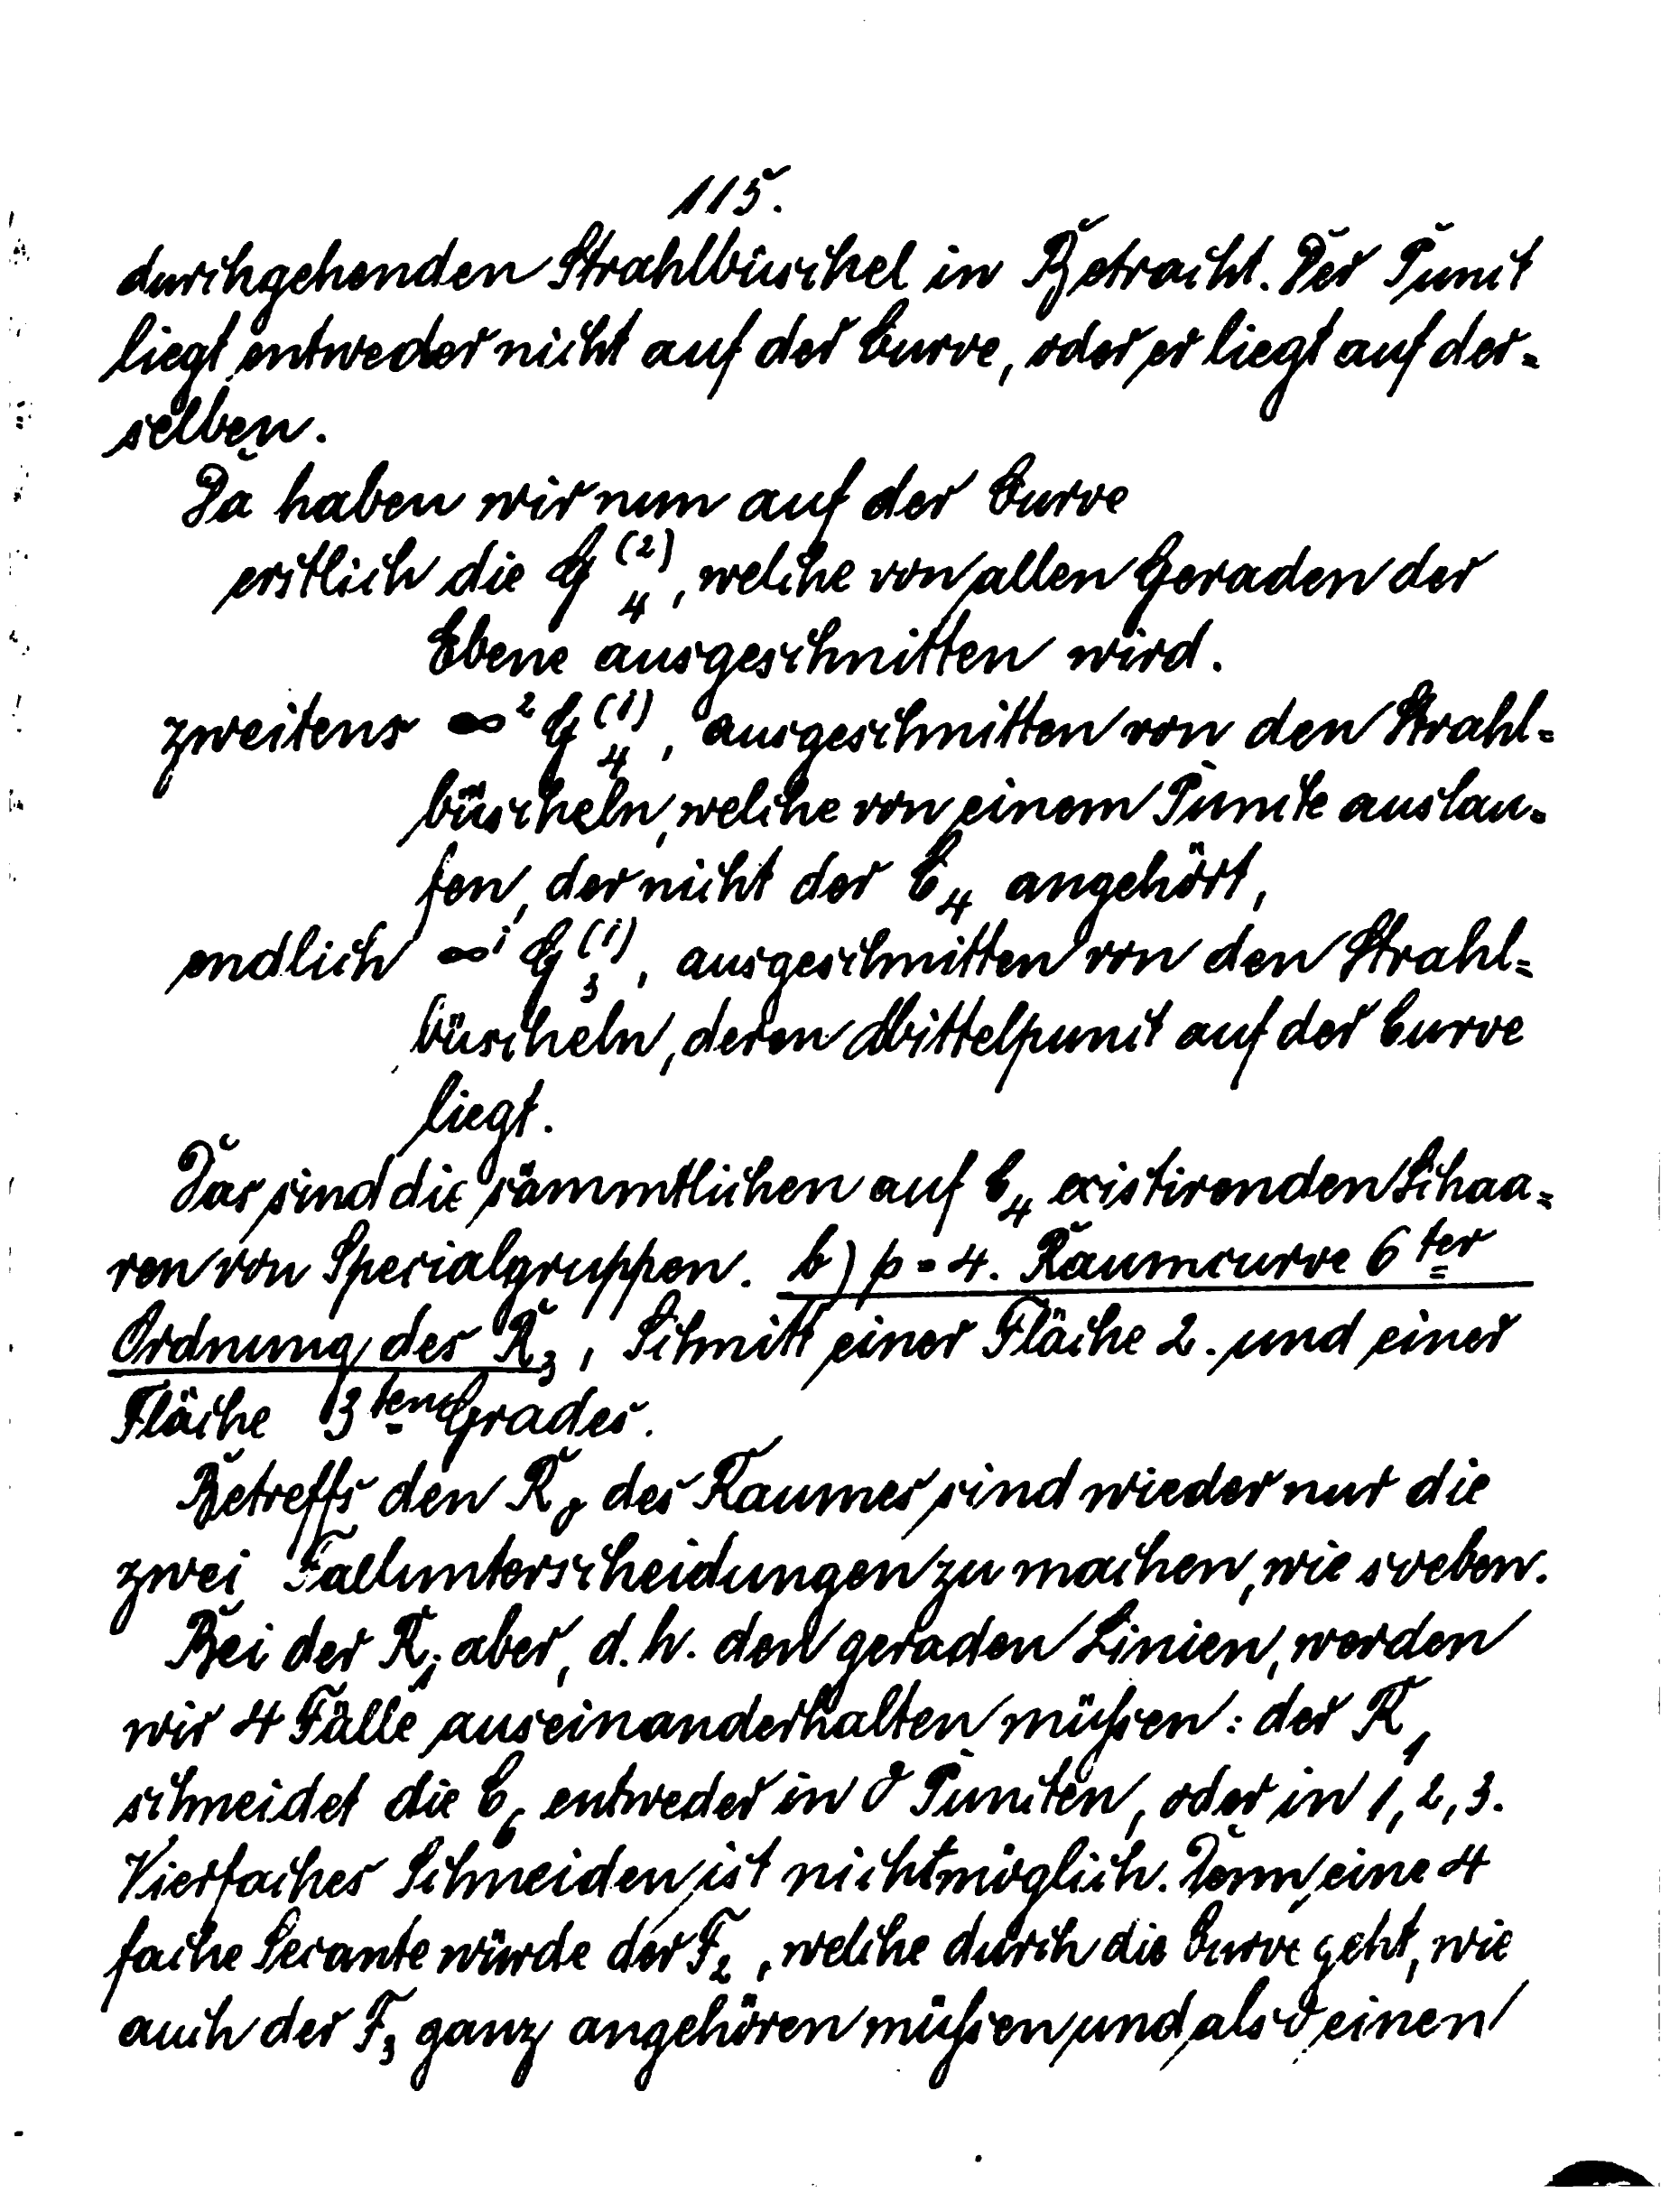 115.
durchgehenden Strahlbüschel in Betracht. Der Punct
liegt entweder nicht auf der Curve, oder er liegt auf der-
selben.
Da haben wir nun auf der Curve
erstlich die G₄⁽²⁾, welche von allen Geraden der
Ebene ausgeschnitten wird.
zweitens ∞² G₄⁽¹⁾, ausgeschnitten von den Strahl-
büscheln, welche von einem Puncte auslau-
fen, der nicht der C₄ angehört,
endlich ∞¹ G₃⁽¹⁾, ausgeschnitten von den Strahl-
büscheln, deren Mittelpunct auf der Curve
liegt.
Das sind die sämmtlichen auf C₄ existirenden Schaa-
ren von Specialgruppen. b) p = 4. Raumcurve 6ter
Ordnung des R₃, Schnitt einer Fläche 2. und einer
Fläche 3ten Grades.
Betreffs den R₀ des Raumes sind wieder nur die
zwei Fallunterscheidungen zu machen, wie soeben.
Bei der R₁ aber, d. h. den geraden Linien, werden
wir 4 Fälle auseinanderhalten müßen: der R₁
schneidet die C₆ entweder in 0 Puncten, oder in 1, 2, 3.
Vierfaches Schneiden ist nicht möglich. Denn eine 4
fache Secante würde der F₂, welche durch die Curve geht, wie
auch der F₃ ganz angehören müßen und also einen